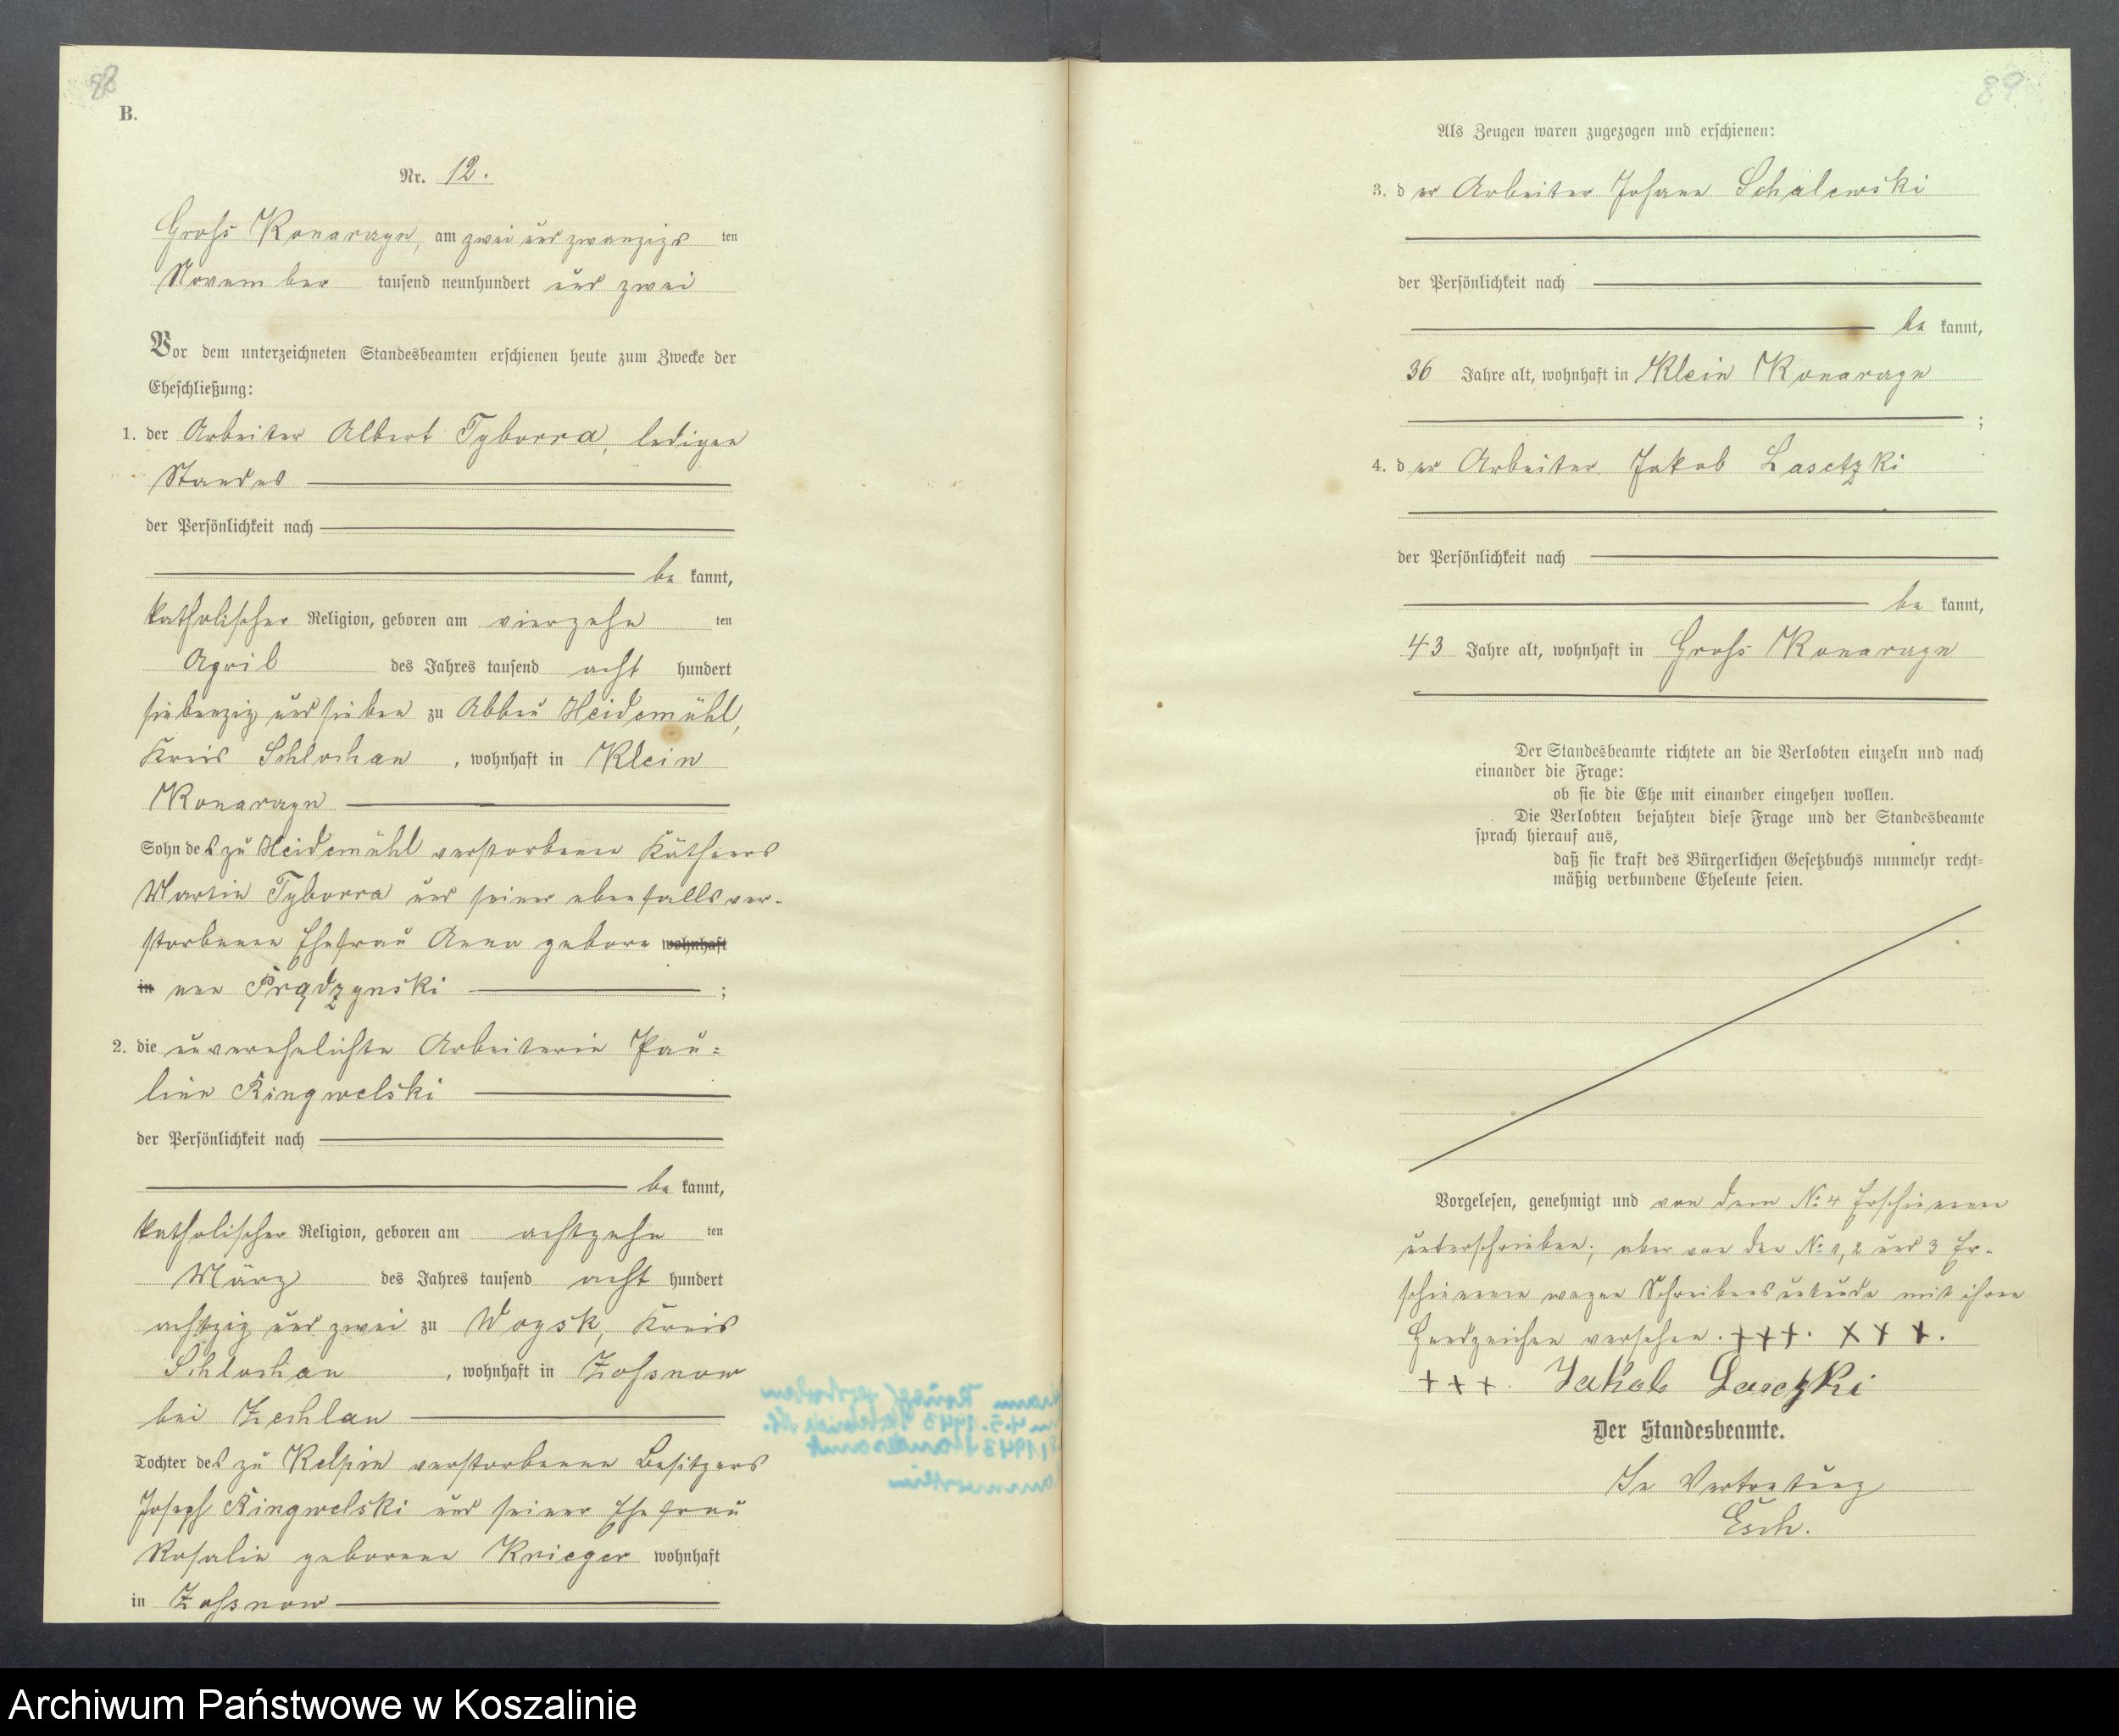 88
B.
Nr. 12.
Gross Konarczyn, am zwei und zwanzigs ten
November tausend neunhundert und zwei
Vor dem unterzeichneten Standesbeamten erschienen heute zum Zwecke der
Eheschließung:
1. der Arbeiter Albert Tyborra, ledigen
Standes
der Persönlichkeit nach
be kannt,
katholischer Religion, geboren am vierzehn ten
April des Jahres tausend acht hundert
siebenzig und sieben zu Abbau Heidemühl,
Kreis Schlochau, wohnhaft in Klein
Konarczyn
Sohn des zu Heidemühl verstorbenen Käthners
Martin Tyborra und seiner ebenfalls ver-
storbenen Ehefrau Anna gebore wohnhaft
in nen Prądzynski ;
2. die unverehelichte Arbeiterin Pau=
line Ringwelski
der Persönlichkeit nach
be kannt,
katholischer Religion, geboren am achtzehn ten
März des Jahres tausend acht hundert
achtzig und zwei zu Woysk, Kreis
Schlochau, wohnhaft in Zossnow
bei Zechlau
Tochter des zu Kelpin verstorbenen Besitzers
Joseph Ringwelski und seiner Ehefrau
Rosalie geborenen Krieger wohnhaft
in Zossnow
89
Als Zeugen waren zugezogen und erschienen:
3. der Arbeiter Johann Schalewski
der Persönlichkeit nach
be kannt,
36 Jahre alt, wohnhaft in Klein Konarczyn
;
4. der Arbeiter Jakob Lasetzki
der Persönlichkeit nach
be kannt,
43 Jahre alt, wohnhaft in Gross Konarczyn
Der Standesbeamte richtete an die Verlobten einzeln und nach
einander die Frage:
ob sie die Ehe mit einander eingehen wollen.
Die Verlobten bejahten diese Frage und der Standesbeamte
sprach hierauf aus,
daß sie kraft des Bürgerlichen Gesetzbuchs nunmehr recht=
mäßig verbundene Eheleute seien.
Vorgelesen, genehmigt und von dem No 4 Erschienenen
unterschrieben; aber von den No 1, 2 und 3 Er-
schienenen wegen Schreibensunkunde mit ihren
Handzeichen versehen. +++. +++.
+++. Jakob Lasetzki
Der Standesbeamte.
In Vertretung
Esch.
Archiwum Państwowe w Koszalinie